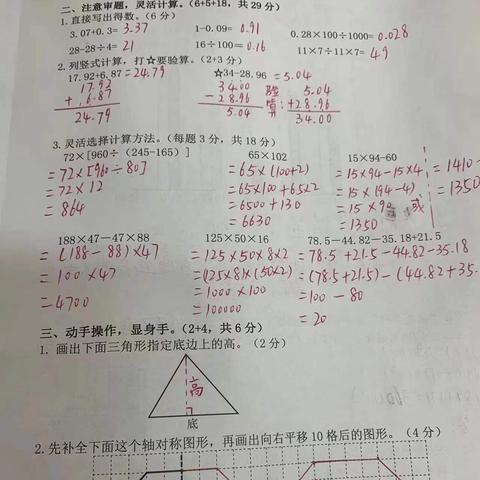 二、注意审题，灵活计算。（6+5+18，共 29 分）
1. 直接写出得数。（6 分）
3.07+0.3= 3.37 1-0.09= 0.91 0.28×100÷1000= 0.028
28-28÷4= 21 16÷100= 0.16 11×7÷11×7= 49
2. 列竖式计算，打☆要验算。（2+3 分）
17.92+6.87 =24.79 ☆34-28.96 =5.04
17.92 34.00 验 5.04
+ 6.87 -28.96 算: +28.96
24.79 5.04 34.00
3. 灵活选择计算方法。（每题 3 分，共 18 分）
72×[960÷（245-165）] 65×102 15×94-60
=72×[960÷80] =65×(100+2) =15×94-15×4 =1410-
=72×12 =65×100+65×2 =15×(94-4) =1350
=864 =6500+130 =15×90 或
=6630 =1350
188×47－47×88 125×50×16 78.5－44.82－35.18+21.5
=(188-88)×47 =125×50×8×2 =78.5+21.5-44.82-35.18
=100×47 =(125×8)×(50×2) =(78.5+21.5)-(44.82+35.
=4700 =1000×100 =100-80
=100000 =20
三、动手操作，显身手。（2+4，共 6 分）
1. 画出下面三角形指定底边上的高。（2 分）
高
底
2. 先补全下面这个轴对称图形，再画出向右平移 10 格后的图形。（4 分）